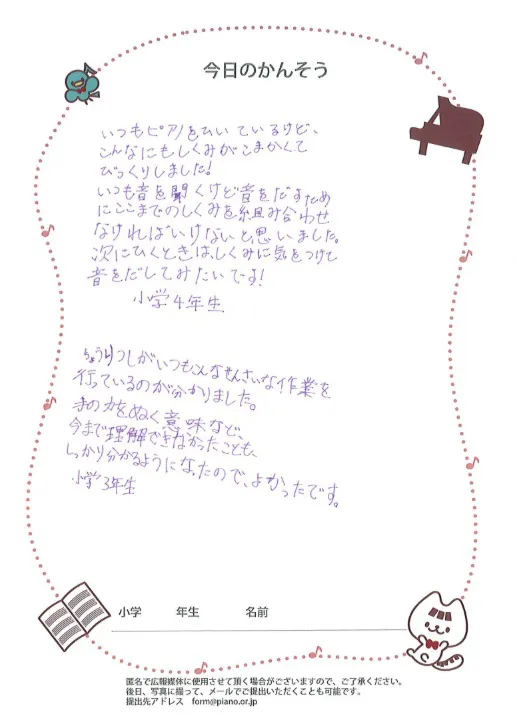 今日のかんそう
いつもピアノをひいているけど、
こんなにもしくみがこまかくて
びっくりしました!
いつも音を聞くけど音をだすため
にここまでのしくみを組み合わせ
なければいけないと思いました。
次にひくときは、しくみに気をつけて
音をだしてみたいです!
小学4年生
ちょうりつしがいつもこんなせんさいな作業を
行っているのが分かりました。
手の力をぬく意味など、
今まで理解できなかったことも、
しっかり分かるようになったので、よかったです。
小学3年生
小学 年生 名前
匿名で広報媒体に使用させて頂く場合がございますので、ご了承ください。
後日、写真に撮って、メールでご提出いただくことも可能です。
提出先アドレス form@piano.or.jp